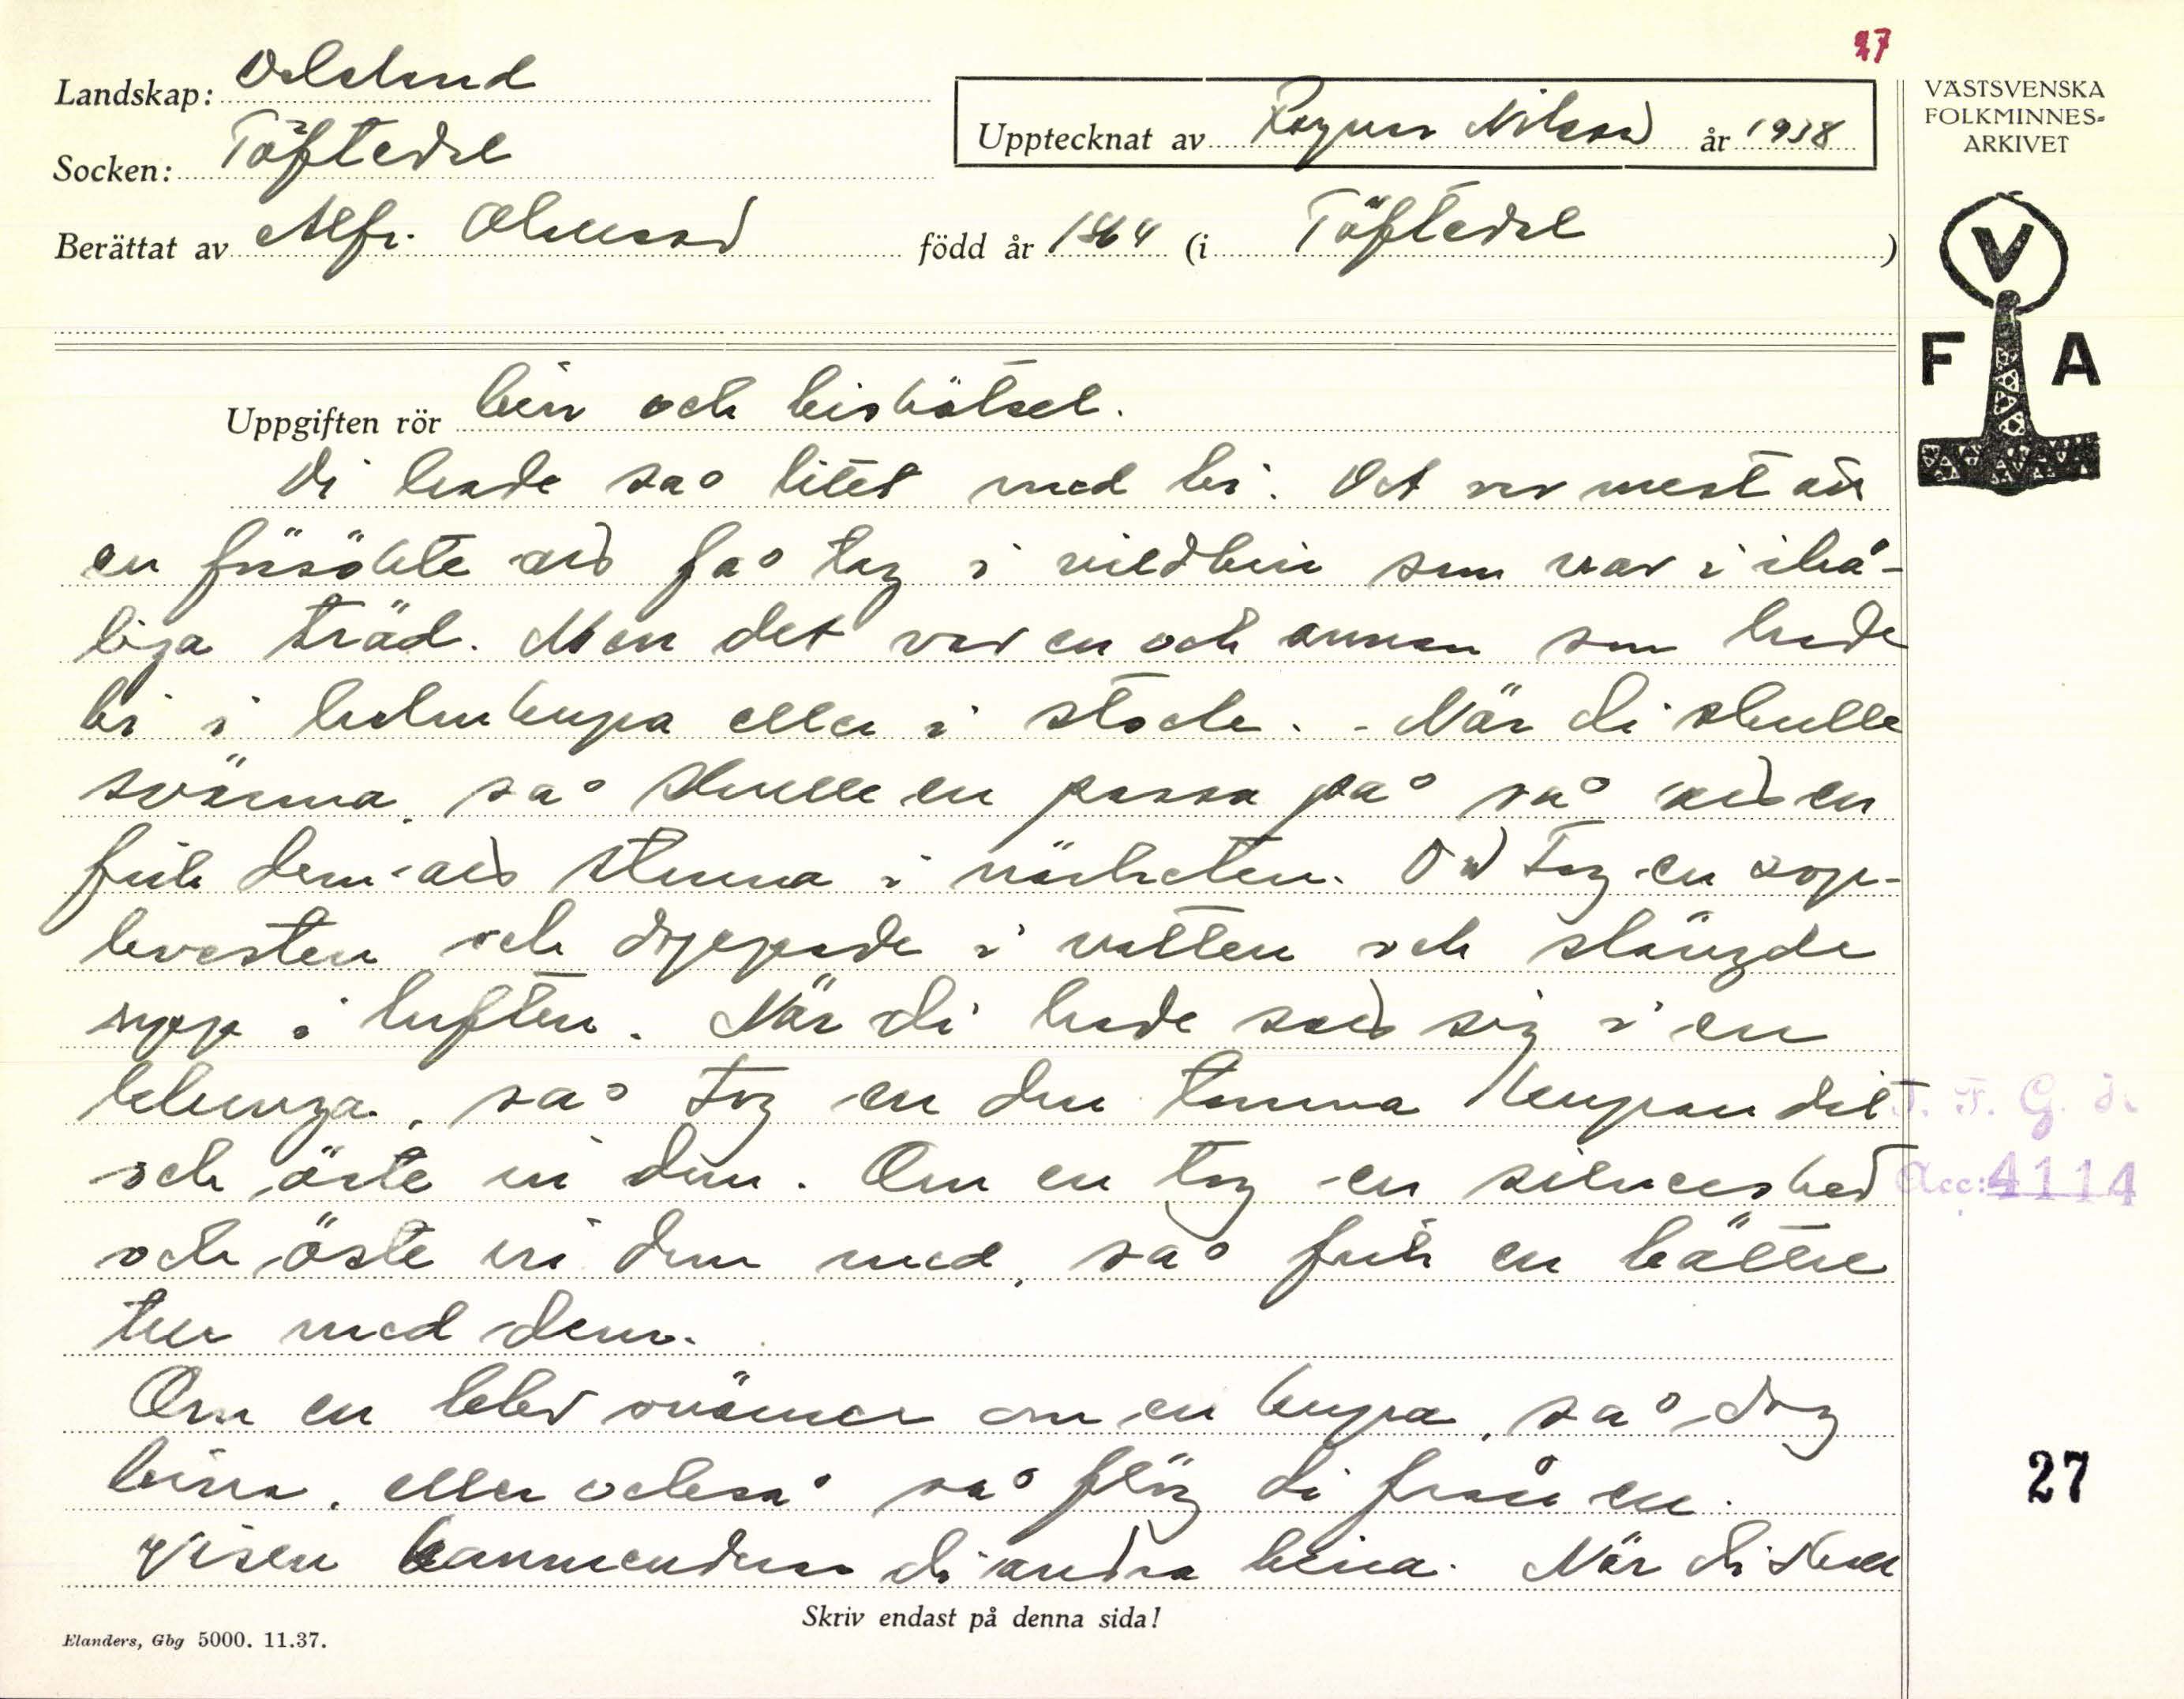 27
Landskap: Dalsland
Upptecknat av Ragnar Nilsson år 1938
VÄSTSVENSKA
FOLKMINNES-
ARKIVET
Socken: Töftedal
Berättat av Alfr. Olausson född år 1864 (i Töftedal)
V
F A
Uppgiften rör bin och biskötsel.
Di hade så litet med bi. Det var mest att
en försökte att få tag i vildbin som var i ihå-
liga träd. Men det var en och annan som hade
bi i halmkupa eller i stock. - När di skulle
svärma, så skulle en passa på så att en
fick dem att stanna i närheten. Då tog en sop-
kvasten och doppade i vatten och slängde
upp i luften. När di hade satt sig i en
klunga, så tog en den tomma kupan dit
och öste in dem. Om en tog en silversked
och öste in dem med, så fick en bättre
tur med dem.
Om en blev ovänner om en kupa, så dog
bina, eller också så flög di från en.
Visen kommenderar di andra bina. När di skall
T. F. G. d.
Acc: 4114
27
Skriv endast på denna sida!
Elanders, Gbg 5000. 11.37.